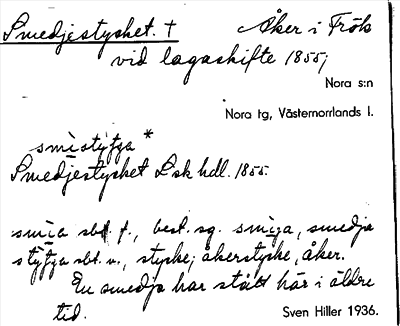 Smedjestycket. † Åker i Frök
vid lagaskifte 1855,
Nora s:n
Nora tg, Västernorrlands l.
smistytja *
Smedjestycket Lsk hdl. 1855.
smia sbst. f., best. sg. smija, smedja
stytja sbt. n., stycke; åkerstycke, åker.
En smedja har stått här i äldre
tid.
Sven Hiller 1936.